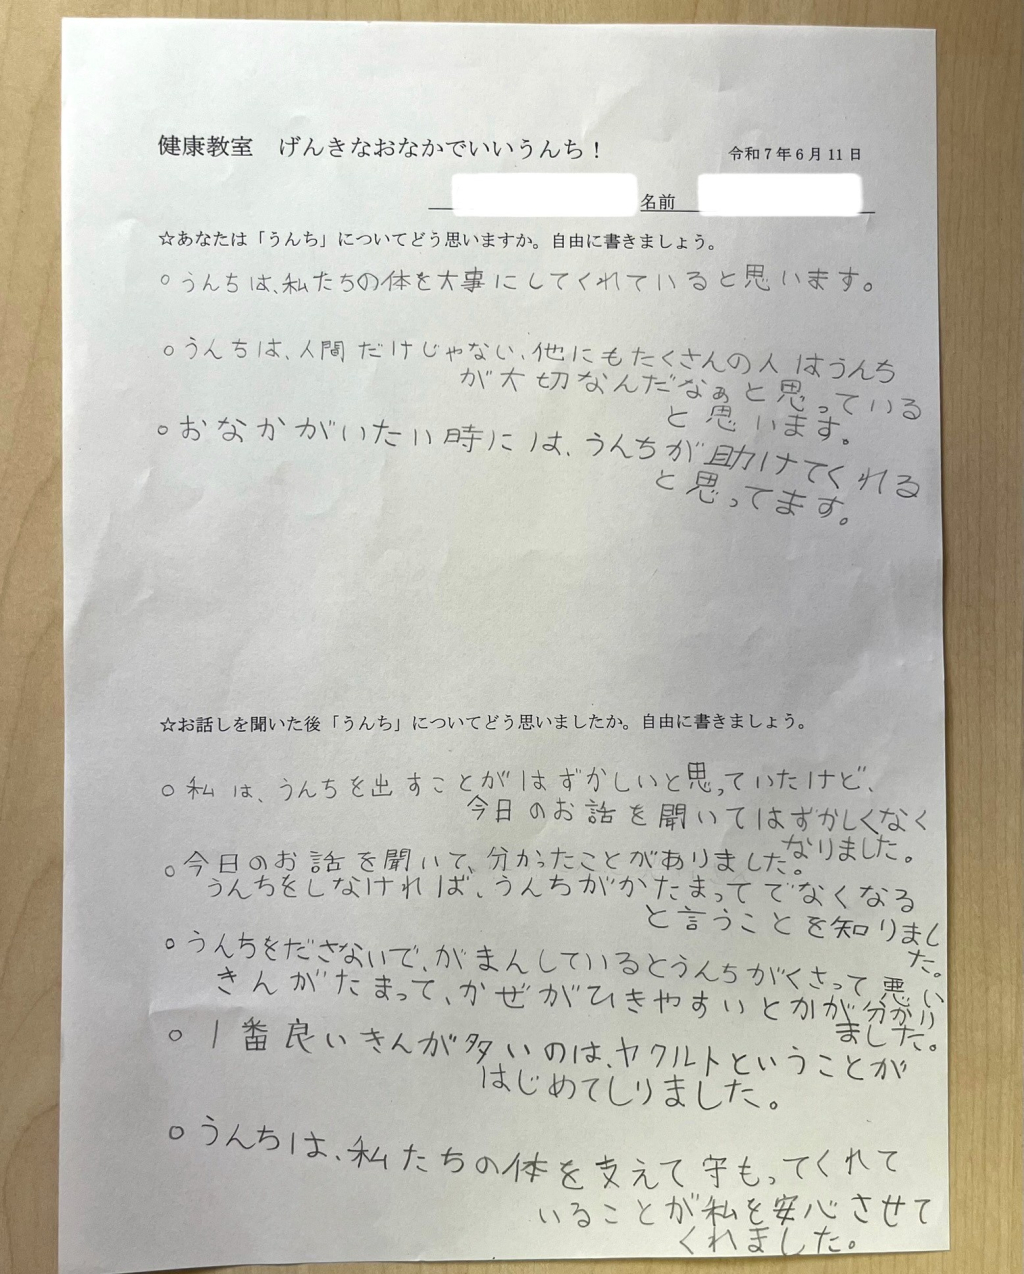 健康教室　げんきなおなかでいいうんち！
令和7年6月11日
名前
☆あなたは「うんち」についてどう思いますか。自由に書きましょう。
○うんちは、私たちの体を大事にしてくれていると思います。
○うんちは、人間だけじゃない、他にもたくさんの人はうんち
が大切なんだなぁと思っている
と思います。
○おなかがいたい時には、うんちが助けてくれる
と思ってます。
☆お話しを聞いた後「うんち」についてどう思いましたか。自由に書きましょう。
○私は、うんちを出すことがはずかしいと思っていたけど、
今日のお話を聞いてはずかしくなく
なりました。
○今日のお話を聞いて、分かったことがありました。
うんちをしなければ、うんちがかたまってでなくなる
と言うことを知りまし
た。
○うんちをださないで、がまんしているとうんちがくさって悪い
きんがたまって、かぜがひきやすいとかが分かり
ました。
○1番良いきんが多いのは、ヤクルトということが
はじめてしりました。
○うんちは、私たちの体を支えて守もってくれて
いることが私を安心させて
くれました。